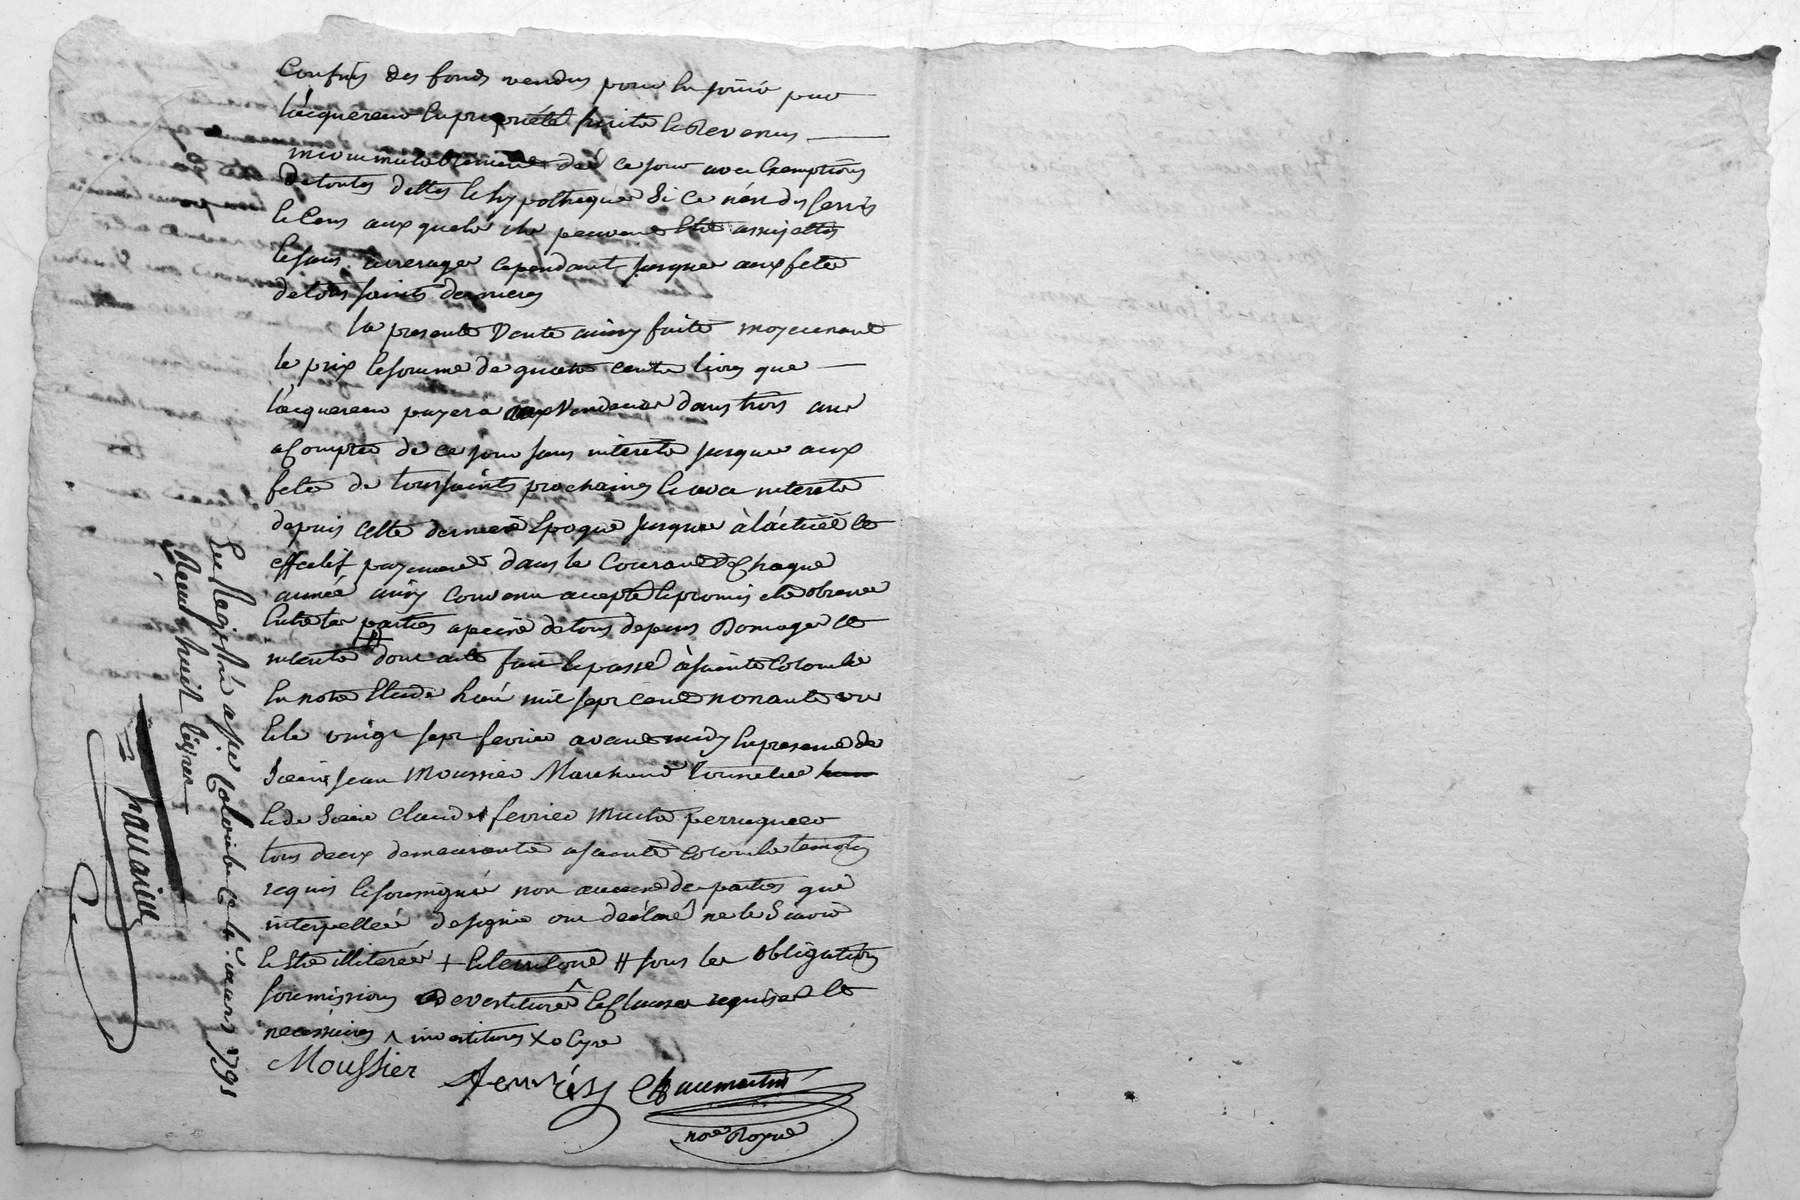 Confins des fonds vendus pour en jouir par
l'acquereur en proprieté suite et Revenus
incommutablement dez ce jour avec exemptions
de toutes dettes et hypotheques Si ce n'est des servis
et Cens aux quels ils peuvent etre assujettis
et sans arrerages cependant jusques aux fetes
de tous saints dernieres
la presente Vente ainsy faite moyennant
le prix et somme de quatre cents livres que
l'acquereur payera aux Vendeurs dans trois ans
a Compter de ce jour sans interets jusques aux
fetes de toussaints prochaines et avec interets
depuis cette derniere Epoque jusques à l'actuel et
effectif payement dans le Courant de Chaque
année ainsy convenu accepté et promis etre observé
entre les parties a peine de tous depens Domages et
interets # dont acte fait et passé à Sainte Colombe
en notre Etude l'an mil sept cent nonante un
et le vingt sept fevrier avant midy en presence de
Sieur Jean Moussier Marchand Tonnelier
et de Sieur Claude fevrier Maitre perruquier
tous deux demeurants a Sainte Colombe temoins
requis et soussignés non aucune des parties que
interpellées de signer ont declaré ne le Scavoir
et etre illiterées + # sous les obligations
soumissions devestitures et Clauses requises et
necessaires ^ investitures
Moussier
fevrier Chaumartin
nore Royal
Enregistré a Ste Colombe le 4e mars 1791